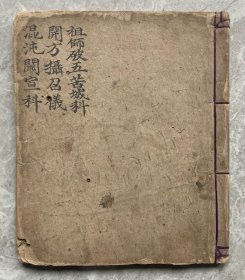 祖師破五苦城科
開方攝召儀
混沌闕宣一科